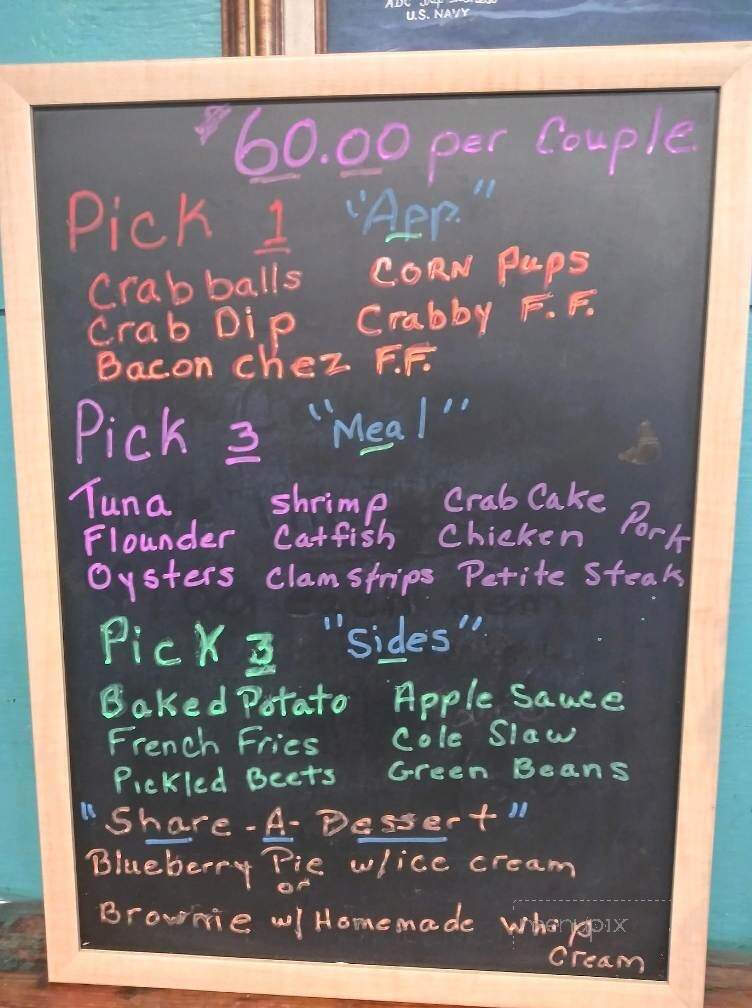 U.S. NAVY
$60.00 per Couple
Pick 1 "App."
Crab balls CORN Pups
Crab Dip Crabby F.F.
Bacon chez F.F.
Pick 3 "Meal"
Tuna shrimp Crab Cake Pork
Flounder Catfish Chicken
Oysters Clam strips Petite Steak
Pick 3 "Sides"
Baked Potato Apple Sauce
French Fries Cole Slaw
Pickled Beets Green Beans
"Share-A-Dessert"
Blueberry Pie w/ice cream
or
Brownie w/ Homemade Whip
Cream
menupix